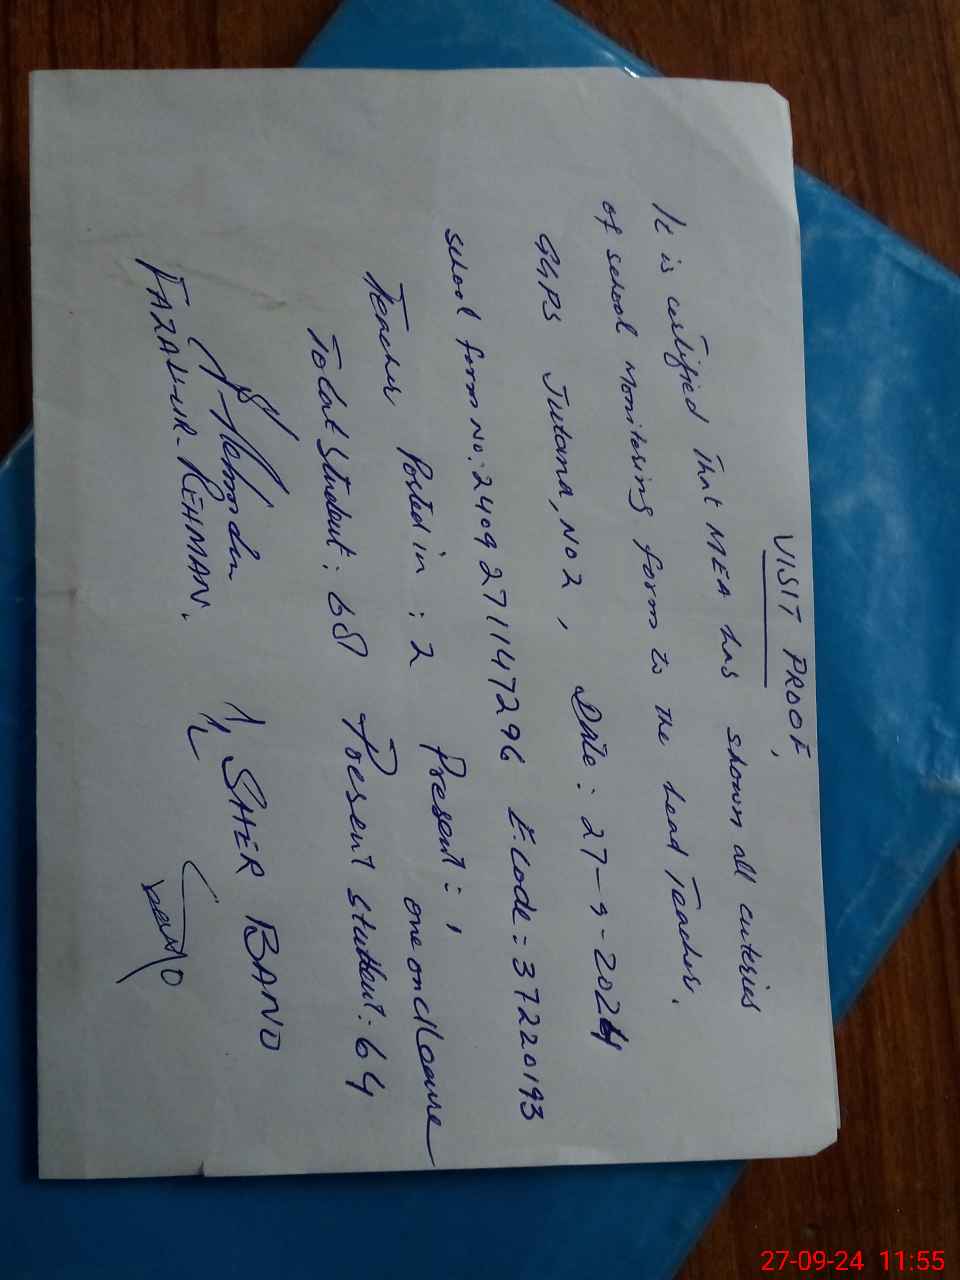 VISIT PROOF,
It is certified that MEA has shown all enteries
of school monitoring form to the head Teacher.
GGPS Jutana, No 2, Date: 27-9-2024
School form No: 2409271147296 E.Code = 37220193
Teacher Posted in : 2 Present = 1,
one on cl leave
Total Student: 68 Present student: 64
1/2 SHER BANO
FAZAL-UR-REHMAN.
27-09-24 11:55